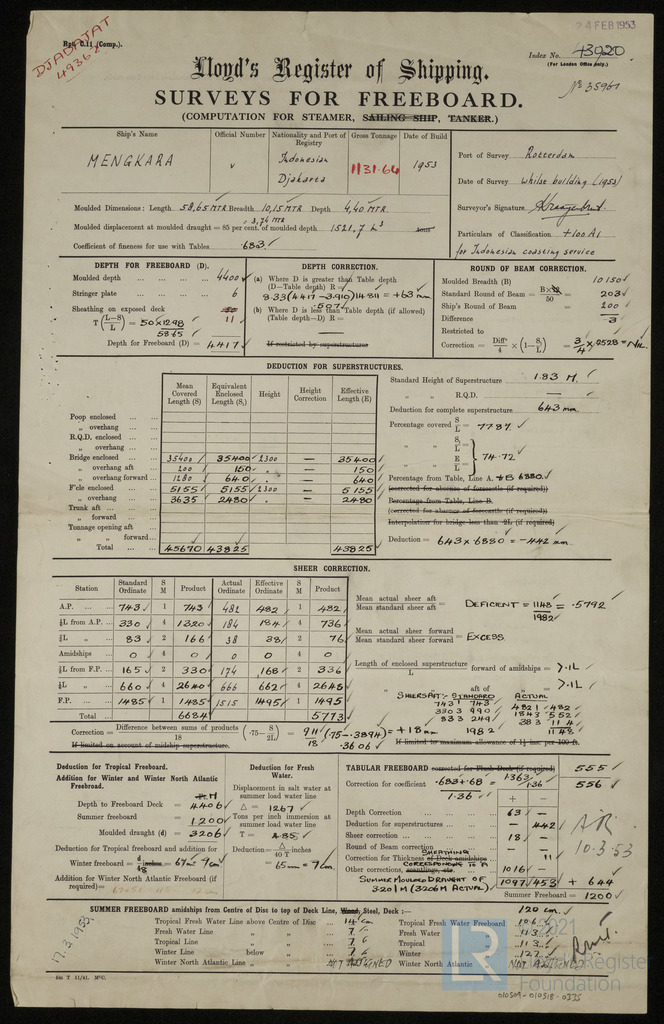 24 FEB 1953
Rpt. C.11 (Comp.).
DJADAJAT
49362
Index No. 43920
(For London Office only.)
No 35961
Lloyd's Register of Shipping.
SURVEYS FOR FREEBOARD.
(COMPUTATION FOR STEAMER, SAILING SHIP, TANKER.)
Ship's Name Official Number Nationality and Port of Registry Gross Tonnage Date of Build
MENGKARA v Indonesian Djakarta 1131.64 1953
Port of Survey Rotterdam
Date of Survey whilst building (1953)
Surveyor's Signature
Particulars of Classification +100A1
for Indonesian coasting service
Moulded Dimensions: Length 58,65 MTR Breadth 10,15 MTR Depth 4,40 MTR
3,74 MTR
Moulded displacement at moulded draught = 85 per cent. of moulded depth 1521,7 tons
Coefficient of fineness for use with Tables .683
DEPTH FOR FREEBOARD (D).
Moulded depth 4400
Stringer plate 6
Sheathing on exposed deck
T (L-S / L) = 50×1298 / 5865 11
Depth for Freeboard (D) = 4417
DEPTH CORRECTION.
(a) Where D is greater than Table depth
(D—Table depth) R =
8.33 (4417-3910) 14.811 = +63 mm
.507
(b) Where D is less than Table depth (if allowed)
(Table depth—D) R =
If restricted by superstructures
ROUND OF BEAM CORRECTION.
Moulded Breadth (B) 10150
Standard Round of Beam = B×12 / 50 = 203
Ship's Round of Beam = 200
Difference 3
Restricted to
Correction = Diff / 4 × (1 - S1 / L) = 3/4 × .2528 = NIL
DEDUCTION FOR SUPERSTRUCTURES.
Mean Covered Length (S) Equivalent Enclosed Length (S1) Height Height Correction Effective Length (E)
Poop enclosed
„ overhang
R.Q.D. enclosed
„ overhang
Bridge enclosed 35400 35400 2300 — 35400
„ overhang aft 200 150 . — 150
„ overhang forward 1280 640 . — 640
F'cle enclosed 5155 5155 2300 — 5155
„ overhang 3635 2480 . — 2480
Trunk aft
„ forward
Tonnage opening aft
„ „ forward
Total 45670 43825 43825
Standard Height of Superstructure 1.83 M.
„ „ R.Q.D. —
Deduction for complete superstructure 643 mm
Percentage covered S / L = 77.87
„ „ S1 / L
„ „ E / L } = 74.72
Percentage from Table, Line A. + B 68.80
(corrected for absence of forecastle (if required))
Percentage from Table, Line B.
(corrected for absence of forecastle (if required))
Interpolation for bridge less than .2L (if required)
Deduction = 643 × .6880 = -442 mm
SHEER CORRECTION.
Station Standard Ordinate S M Product Actual Ordinate Effective Ordinate S M Product
A.P. 743 1 743 482 482 1 482
⅙L from A.P. 330 4 1320 184 184 4 736
⅓L „ 83 2 166 38 38 2 76
Amidships 0 4 0 0 0 4 0
⅓L from F.P. 165 2 330 174 168 2 336
⅙L „ 660 4 2640 666 662 4 2648
F.P. 1485 1 1485 1515 1495 1 1495
Total 6684 5773
Mean actual sheer aft / Mean standard sheer aft = DEFICIENT = 1148 / 1982 = .5792
Mean actual sheer forward / Mean standard sheer forward = EXCESS
Length of enclosed superstructure / L forward of amidships = >.1L
„ „ aft of „ = >.1L
SHEERS AFT:- STANDARD ACTUAL
743 1 743 482 1 482
330 3 990 184 3 552
83 3 249 38 3 114
1982 1148
Correction = Difference between sums of products / 18 (.75 - S / 2L) = 911 / 18 (.75 - .3894) = +18 mm
.3606
If limited on account of midship superstructure.
If limited to maximum allowance of 1½ ins. per 100 ft.
Deduction for Tropical Freeboard.
Addition for Winter and Winter North Atlantic Freeboard.
M
Depth to Freeboard Deck = 4406
Summer freeboard = 1200
Moulded draught (d) = 3206
Deduction for Tropical freeboard and addition for Winter freeboard = d / 48 = 67 m 7 cm
Addition for Winter North Atlantic Freeboard (if required) =
Deduction for Fresh Water.
Displacement in salt water at summer load water line
Δ = 1267
Tons per inch immersion at summer load water line
T = 4.85
Deduction = Δ / 40 T inches
= 65 mm = 7 cm
TABULAR FREEBOARD corrected for Flush Deck (if required) 555
Correction for coefficient .683+.68 / 1.36 = 1.363 / 1.36 556
+ —
Depth Correction 63 —
Deduction for superstructures — 442
Sheer correction 18 —
Round of Beam correction — —
SHEATHING
Correction for Thickness of Deck amidships — 11
CORRESPONDS TO A
Other corrections, scantlings, etc. 1016 —
SUMMER MOULDED DRAUGHT OF
3.201 M (3206 M ACTUAL)
1097 453 + 644
Summer Freeboard = 1200
10-3-53
SUMMER FREEBOARD amidships from Centre of Disc to top of Deck Line, Wood, Steel, Deck :— 120 cm.
Tropical Fresh Water Line above Centre of Disc 14 cm
Fresh Water Line „ „ 7
Tropical Line „ „ 7
Winter Line below „ 7
Winter North Atlantic Line „ „ NOT ASSIGNED
Tropical Fresh Water Freeboard 106
Fresh Water „ 113
Tropical „ 113
Winter „ 127
Winter North Atlantic „ NOT ASSIGNED
17.3.1953
5m T 11/41. MºC.
LR
2021
Lloyd's Register
Foundation
010509-010518-0335